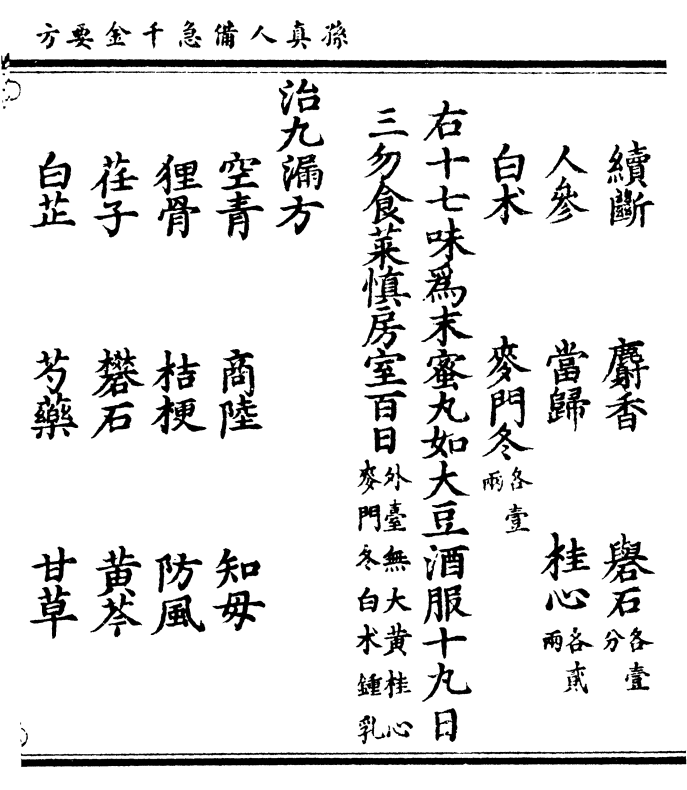 孫真人備急千金要方
續斷 麝香 礜石各壹分
人參 當歸 桂心各貳兩
白术 麥門冬各壹兩
右十七味爲末蜜丸如大豆酒服十丸日
三勿食菜慎房室百日外臺無大黄桂心麥門冬白术鍾乳
治九漏方
空青 商陸 知母
狸骨 桔梗 防風
荏子 礬石 黄芩
白芷 芍藥 甘草